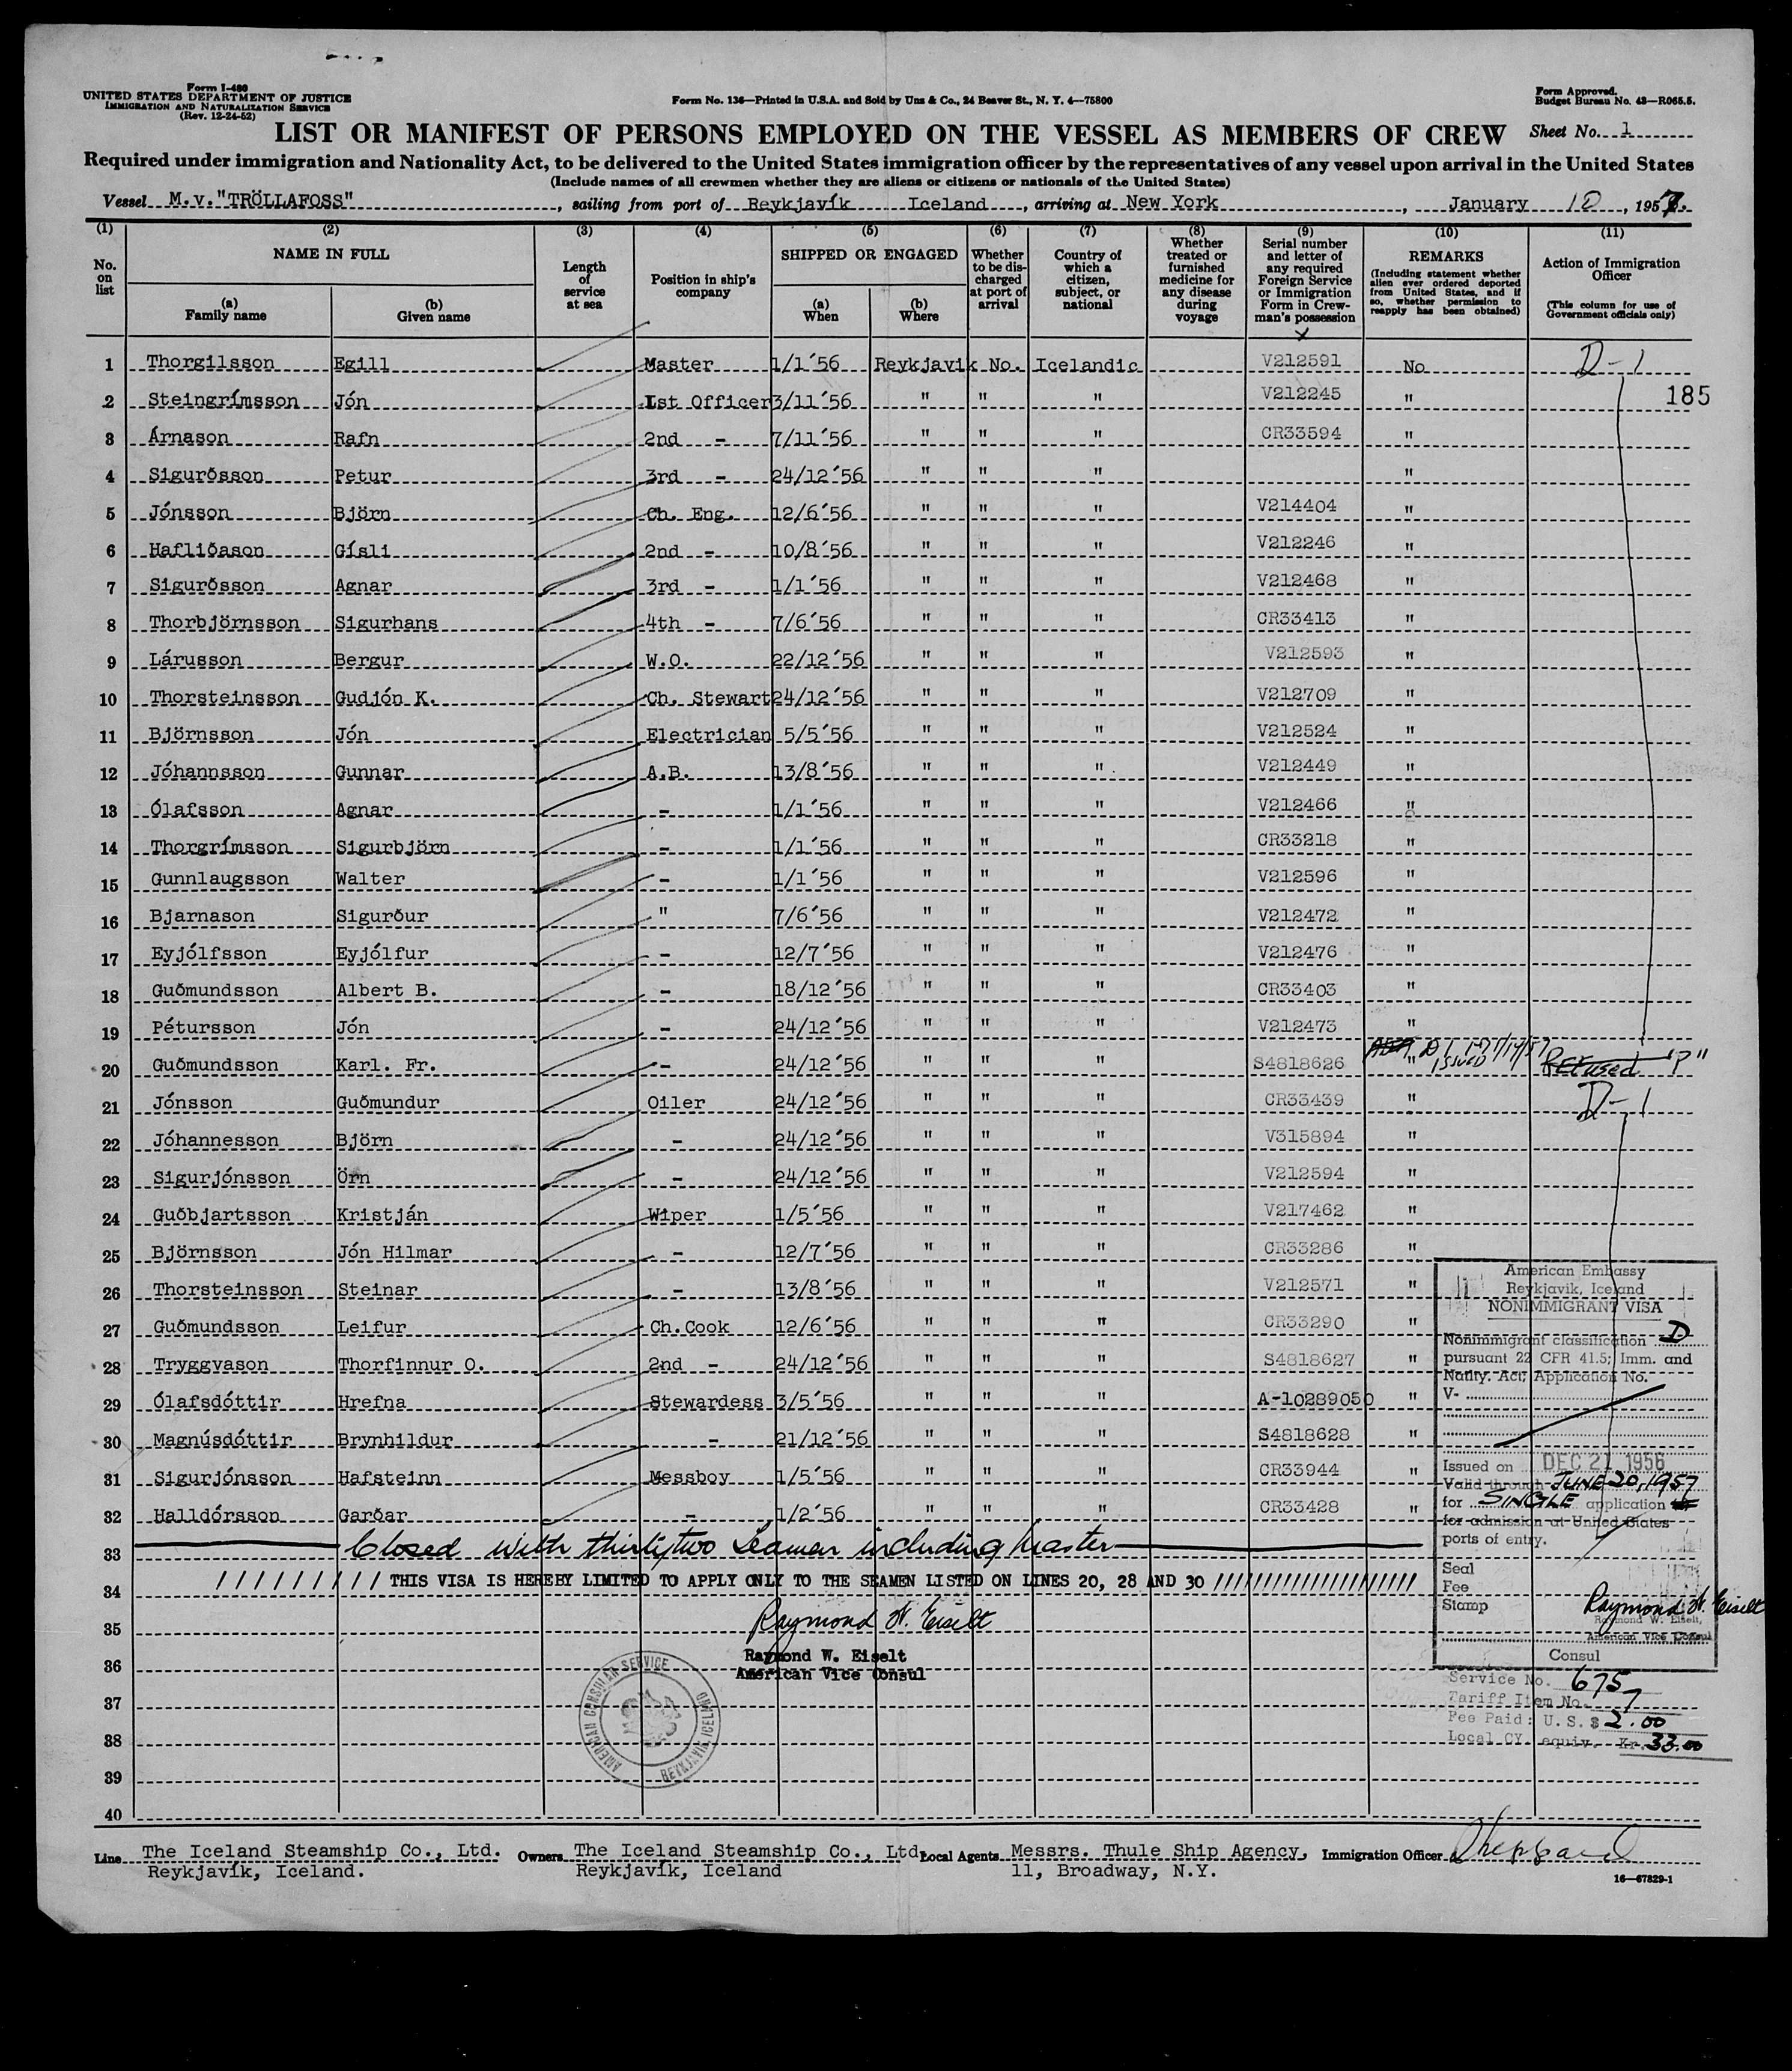 Form I-480
UNITED STATES DEPARTMENT OF JUSTICE
IMMIGRATION AND NATURALIZATION SERVICE
(Rev. 12-24-52)
Form No. 136—Printed in U.S.A. and Sold by Unz & Co., 24 Beaver St., N. Y. 4—75800
Form Approved.
Budget Bureau No. 43—R065.5.
LIST OR MANIFEST OF PERSONS EMPLOYED ON THE VESSEL AS MEMBERS OF CREW Sheet No. 1
Required under immigration and Nationality Act, to be delivered to the United States immigration officer by the representatives of any vessel upon arrival in the United States
(Include names of all crewmen whether they are aliens or citizens or nationals of the United States)
Vessel M.v."TRÖLLAFOSS", sailing from port of Reykjavík Iceland, arriving at New York, January 10, 1957.
(1) (2) (3) (4) (5) (6) (7) (8) (9) (10) (11)
No. on list
NAME IN FULL
(a) Family name
(b) Given name
Length of service at sea
Position in ship's company
SHIPPED OR ENGAGED
(a) When
(b) Where
Whether to be discharged at port of arrival
Country of which a citizen, subject, or national
Whether treated or furnished medicine for any disease during voyage
Serial number and letter of any required Foreign Service or Immigration Form in Crewman's possession
REMARKS
(Including statement whether alien ever ordered deported from United States, and if so, whether permission to reapply has been obtained)
Action of Immigration Officer
(This column for use of Government officials only)
1 Thorgilsson Egill Master 1/1´56 Reykjavik No. Icelandic V212591 No D-1
185
2 Steingrímsson Jón 1st Officer 3/11´56 " " " V212245 "
3 Árnason Rafn 2nd - 7/11´56 " " " CR33594 "
4 Sigurðsson Petur 3rd - 24/12´56 " " " "
5 Jónsson Björn Ch. Eng. 12/6´56 " " " V214404 "
6 Hafliðason Gísli 2nd - 10/8´56 " " " V212246 "
7 Sigurðsson Agnar 3rd - 1/1´56 " " " V212468 "
8 Thorbjörnsson Sigurhans 4th - 7/6´56 " " " CR33413 "
9 Lárusson Bergur W.O. 22/12´56 " " " V212593 "
10 Thorsteinsson Gudjón K. Ch. Stewart 24/12´56 " " " V212709 "
11 Björnsson Jón Electrician 5/5´56 " " " V212524 "
12 Jóhannsson Gunnar A.B. 13/8´56 " " " V212449 "
13 Ólafsson Agnar - 1/1´56 " " " V212466 "
14 Thorgrímsson Sigurbjörn - 1/1´56 " " " CR33218 "
15 Gunnlaugsson Walter - 1/1´56 " " " V212596 "
16 Bjarnason Sigurður " 7/6´56 " " " V212472 "
17 Eyjólfsson Eyjólfur - 12/7´56 " " " V212476 "
18 Guðmundsson Albert B. - 18/12´56 " " " CR33403 "
19 Pétursson Jón - 24/12´56 " " " V212473 "
20 Guðmundsson Karl. Fr. - 24/12´56 " " " S4818626 " ISSUED Refused "P"
21 Jónsson Guðmundur Oiler 24/12´56 " " " CR33439 " D-1
22 Jóhannesson Björn - 24/12´56 " " " V315894 "
23 Sigurjónsson Örn - 24/12´56 " " " V212594 "
24 Guðbjartsson Kristján Wiper 1/5´56 " " " V217462 "
25 Björnsson Jón Hilmar - 12/7´56 " " " CR33286 "
26 Thorsteinsson Steinar - 13/8´56 " " " V212571 "
27 Guðmundsson Leifur Ch.Cook 12/6´56 " " " CR33290 "
28 Tryggvason Thorfinnur O. 2nd - 24/12´56 " " " S4818627 "
29 Ólafsdóttir Hrefna Stewardess 3/5´56 " " " A-10289050 "
30 Magnúsdóttir Brynhildur - 21/12´56 " " " S4818628 "
31 Sigurjónsson Hafsteinn Messboy 1/5´56 " " " CR33944 "
32 Halldórsson Garðar - 1/2´56 " " " CR33428 "
33 Closed with thirtytwo Seamen including Master
34 ////////// THIS VISA IS HEREBY LIMITED TO APPLY ONLY TO THE SEAMEN LISTED ON LINES 20, 28 AND 30 ////////////////////
35 Raymond W. Eiselt
36 Raymond W. Eiselt
American Vice Consul
37
38
39
40
AMERICAN CONSULAR SERVICE
REYKJAVIK, ICELAND
American Embassy
Reykjavik, Iceland
NONIMMIGRANT VISA
Nonimmigrant classification D
pursuant 22 CFR 41.5; Imm. and
Natlty. Act; Application No.
V-
Issued on DEC 21 1956
Valid through JUNE 20, 1957
for SINGLE application
for admission at United States
ports of entry.
Seal
Fee
Stamp
Raymond W. Eiselt
Raymond W. Eiselt,
American Vice Consul
Consul
Service No. 675
Tariff Item No. 7
Fee Paid: U.S. $ 2.00
Local CY. equiv. Kr. 33.00
Line The Iceland Steamship Co., Ltd. Owners The Iceland Steamship Co., Ltd. Local Agents Messrs. Thule Ship Agency, Immigration Officer
Reykjavík, Iceland. Reykjavík, Iceland 11, Broadway, N.Y.
16—67829-1